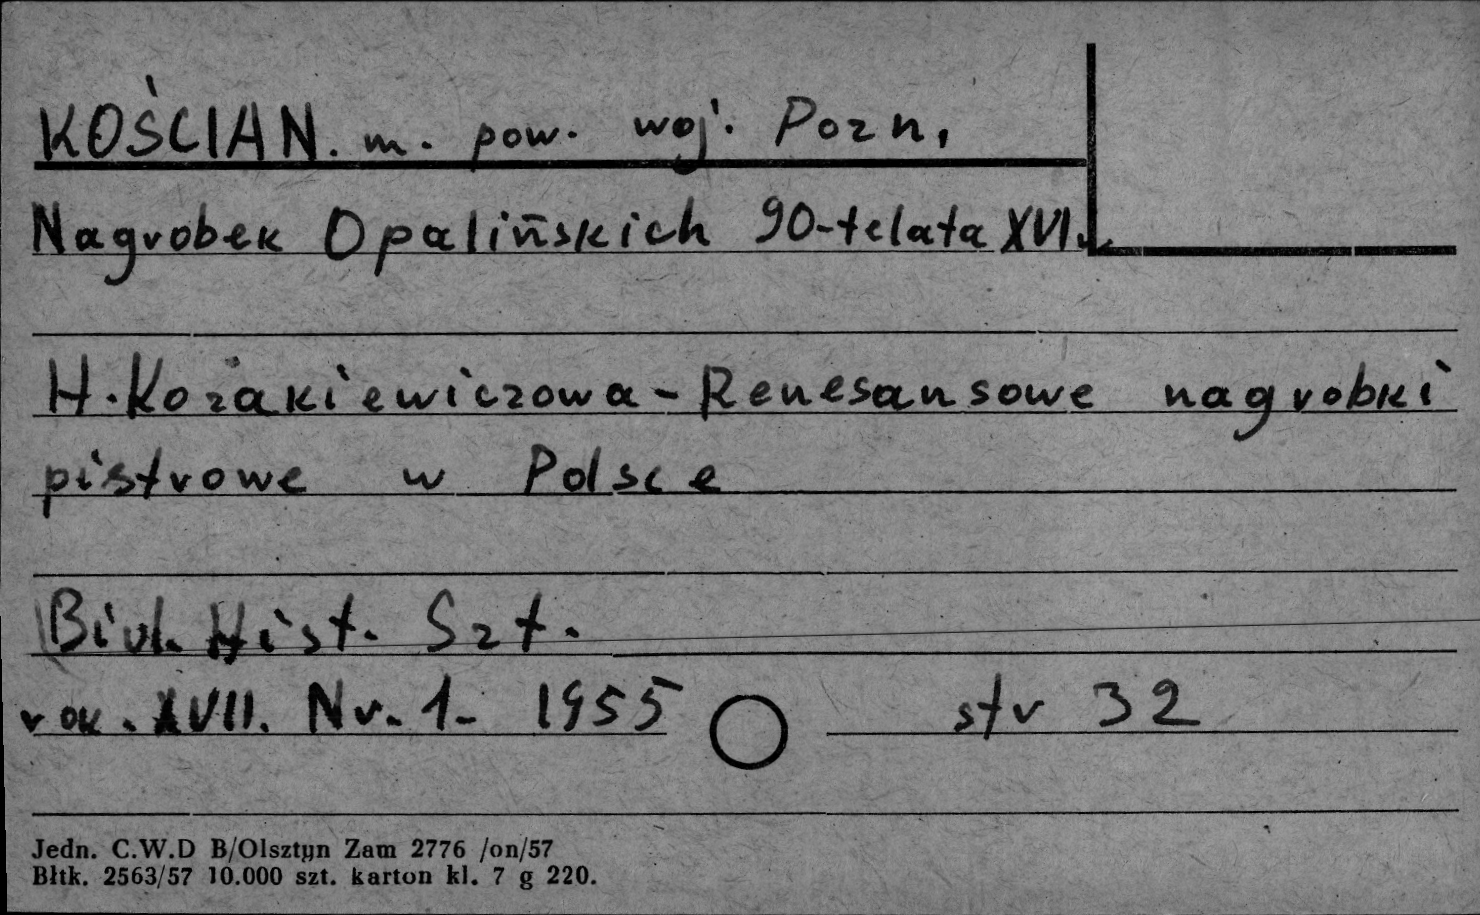 KOŚCIAN. m. pow. woj. Pozn.
Nagrobek Opalińskich 90-te lata XVI w.
H. Kozakiewiczowa - Renesansowe nagrobki
pistrowe w Polsce
Biul. Hist. Szt.
rok. XVII. Nr. 1- 1955 str 32
Jedn. C.W.D B/Olsztyn Zam 2776 /on/57
Błtk. 2563/57 10.000 szt. karton kl. 7 g 220.